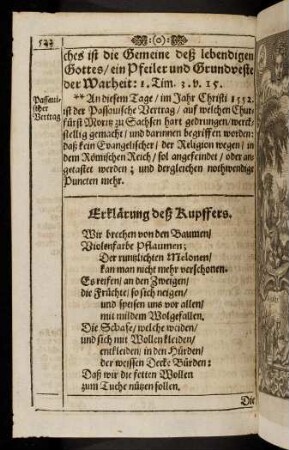 ches ist die Gemeine deß lebendigen
Gottes / ein Pfeiler und Grundveste
der Warheit: 1. Tim. 3. v. 15.
Passaui-
scher
Vertrag
** An diesem Tage / im Jahr Christi 1552.
ist der Passauische Vertrag / auf welchem Chur-
fürst Moritz zu Sachsen hart gedrungen / werck-
stellig gemacht / und darinnen begriffen worden:
daß kein Evangelischer / der Religion wegen / in
dem Römischen Reich / sol angefeindet / oder an-
getastet werden; und dergleichen nothwendige
Puncten mehr.
Erklärung deß Kupffers.
Wir brechen von den Baumen /
Violenfarbe Pflaumen;
Der runtzlichten Melonen /
kan man nicht mehr verschonen.
Es reifen / an den Zweigen /
die Früchte / so sich neigen /
und speisen uns vor allen /
mit mildem Wolgefallen.
Die Schafe / welche weiden /
und sich mit Wollen kleiden /
entkleiden / in den Hürden /
der weissen Decke Bürden:
Daß wir die fetten Wollen
zum Tuche nützen sollen.
Die